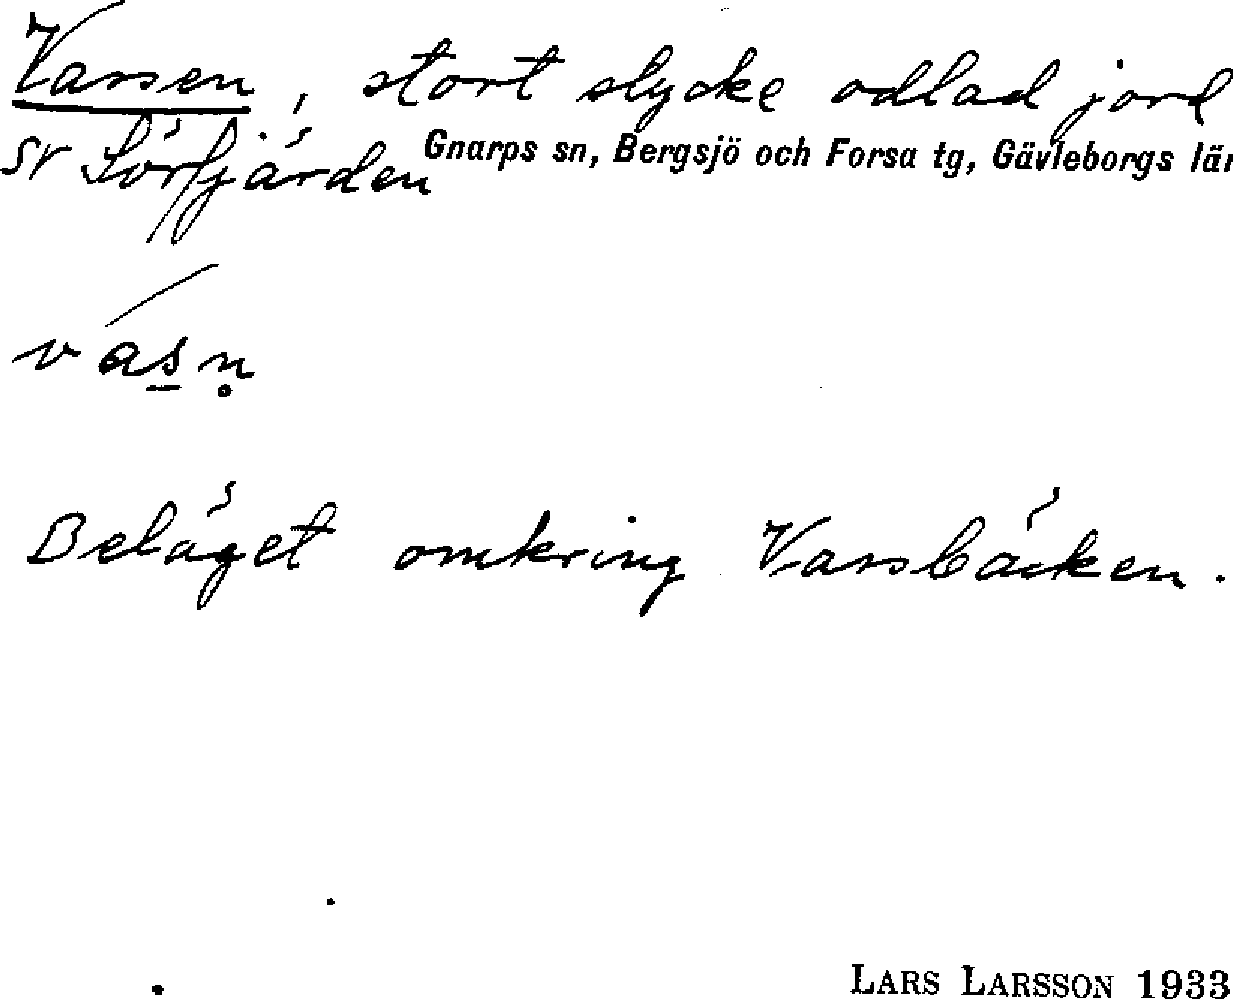 Varsen, stort stycke odlad jord
sv Sörfjärden Gnarps sn, Bergsjö och Forsa tg, Gävleborgs län
vasn̥
Beläget omkring Varsbäcken.
LARS LARSSON 1933